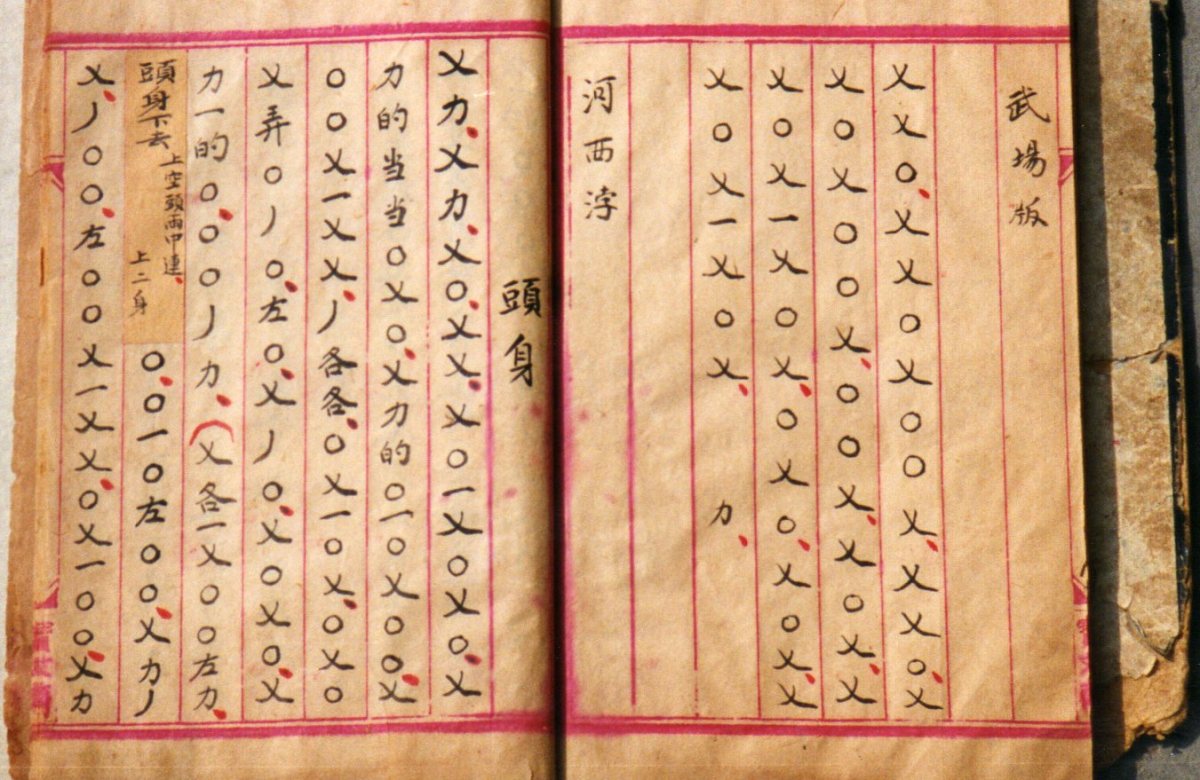 武場版
乂乂〇乂乂〇乂〇〇乂乂乂〇乂
乂〇乂〇〇乂〇〇乂乂〇乂乂
乂〇乂一乂〇乂〇乂〇乂〇乂乂
乂〇乂一乂〇乂 力
河西浡
頭身
乂力乂力乂〇乂乂乂〇一乂〇乂〇乂
力的当当〇乂〇乂力的〇一〇乂〇〇乂
〇〇乂一乂乂丿各各〇乂一〇乂〇乂〇
乂弄〇丿〇左〇乂丿〇乂〇乂〇乂
力一的〇〇〇丿力(乂各一乂〇〇左力
頭身下去
上空頭両中連
上二身
〇〇一〇左〇〇乂力丿
乂丿〇〇左〇〇乂一乂乂〇乂一〇〇乂力